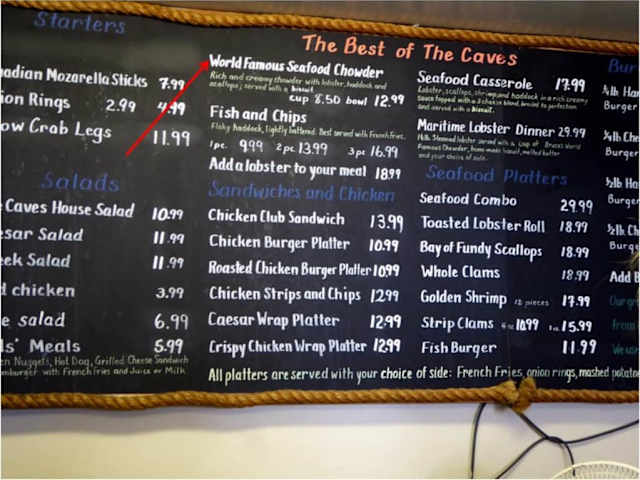 Starters
adian Mozarella Sticks 7.99
ion Rings 2.99 4.99
ow Crab Legs 11.99
Salads
Caves House Salad 10.99
esar Salad 11.99
eek Salad 11.99
d chicken 3.99
e salad 6.99
ds' Meals 5.99
en Nuggets, Hot Dog, Grilled Cheese Sandwich
amburger with French fries and Juice or Milk
The Best of The Caves
World Famous Seafood Chowder
Rich and creamy chowder with lobster, haddock and
scallops; served with a biscuit.
cup 8.50 bowl 12.99
Fish and Chips
Flaky haddock, lightly battered. Best served with French fries.
1 pc. 9.99 2 pc 13.99 3 pc 16.99
Add a lobster to your meal 18.99
Sandwiches and Chicken
Chicken Club Sandwich 13.99
Chicken Burger Platter 10.99
Roasted Chicken Burger Platter 10.99
Chicken Strips and Chips 12.99
Caesar Wrap Platter 12.99
Crispy Chicken Wrap Platter 12.99
Seafood Casserole 17.99
Lobster, scallops, shrimp and haddock in a rich creamy
sauce topped with a 3 cheese blend, broiled to perfection
and served with a biscuit.
Maritime Lobster Dinner 29.99
N.B. Steamed lobster served with a cup of World
Famous Chowder, home-made biscuit, melted butter
and your choice of side.
Seafood Platters
Seafood Combo 29.99
Toasted Lobster Roll 18.99
Bay of Fundy Scallops 18.99
Whole Clams 18.99
Golden Shrimp 12 pieces 17.99
Strip Clams 10.99 15.99
Fish Burger 11.99
All platters are served with your choice of side: French Fries, onion rings, mashed potatoe
Bur
¼lb Ham
Burger
¼lb Che
Burger
½lb Ha
Burger
½lb Ch
Burger
Add B